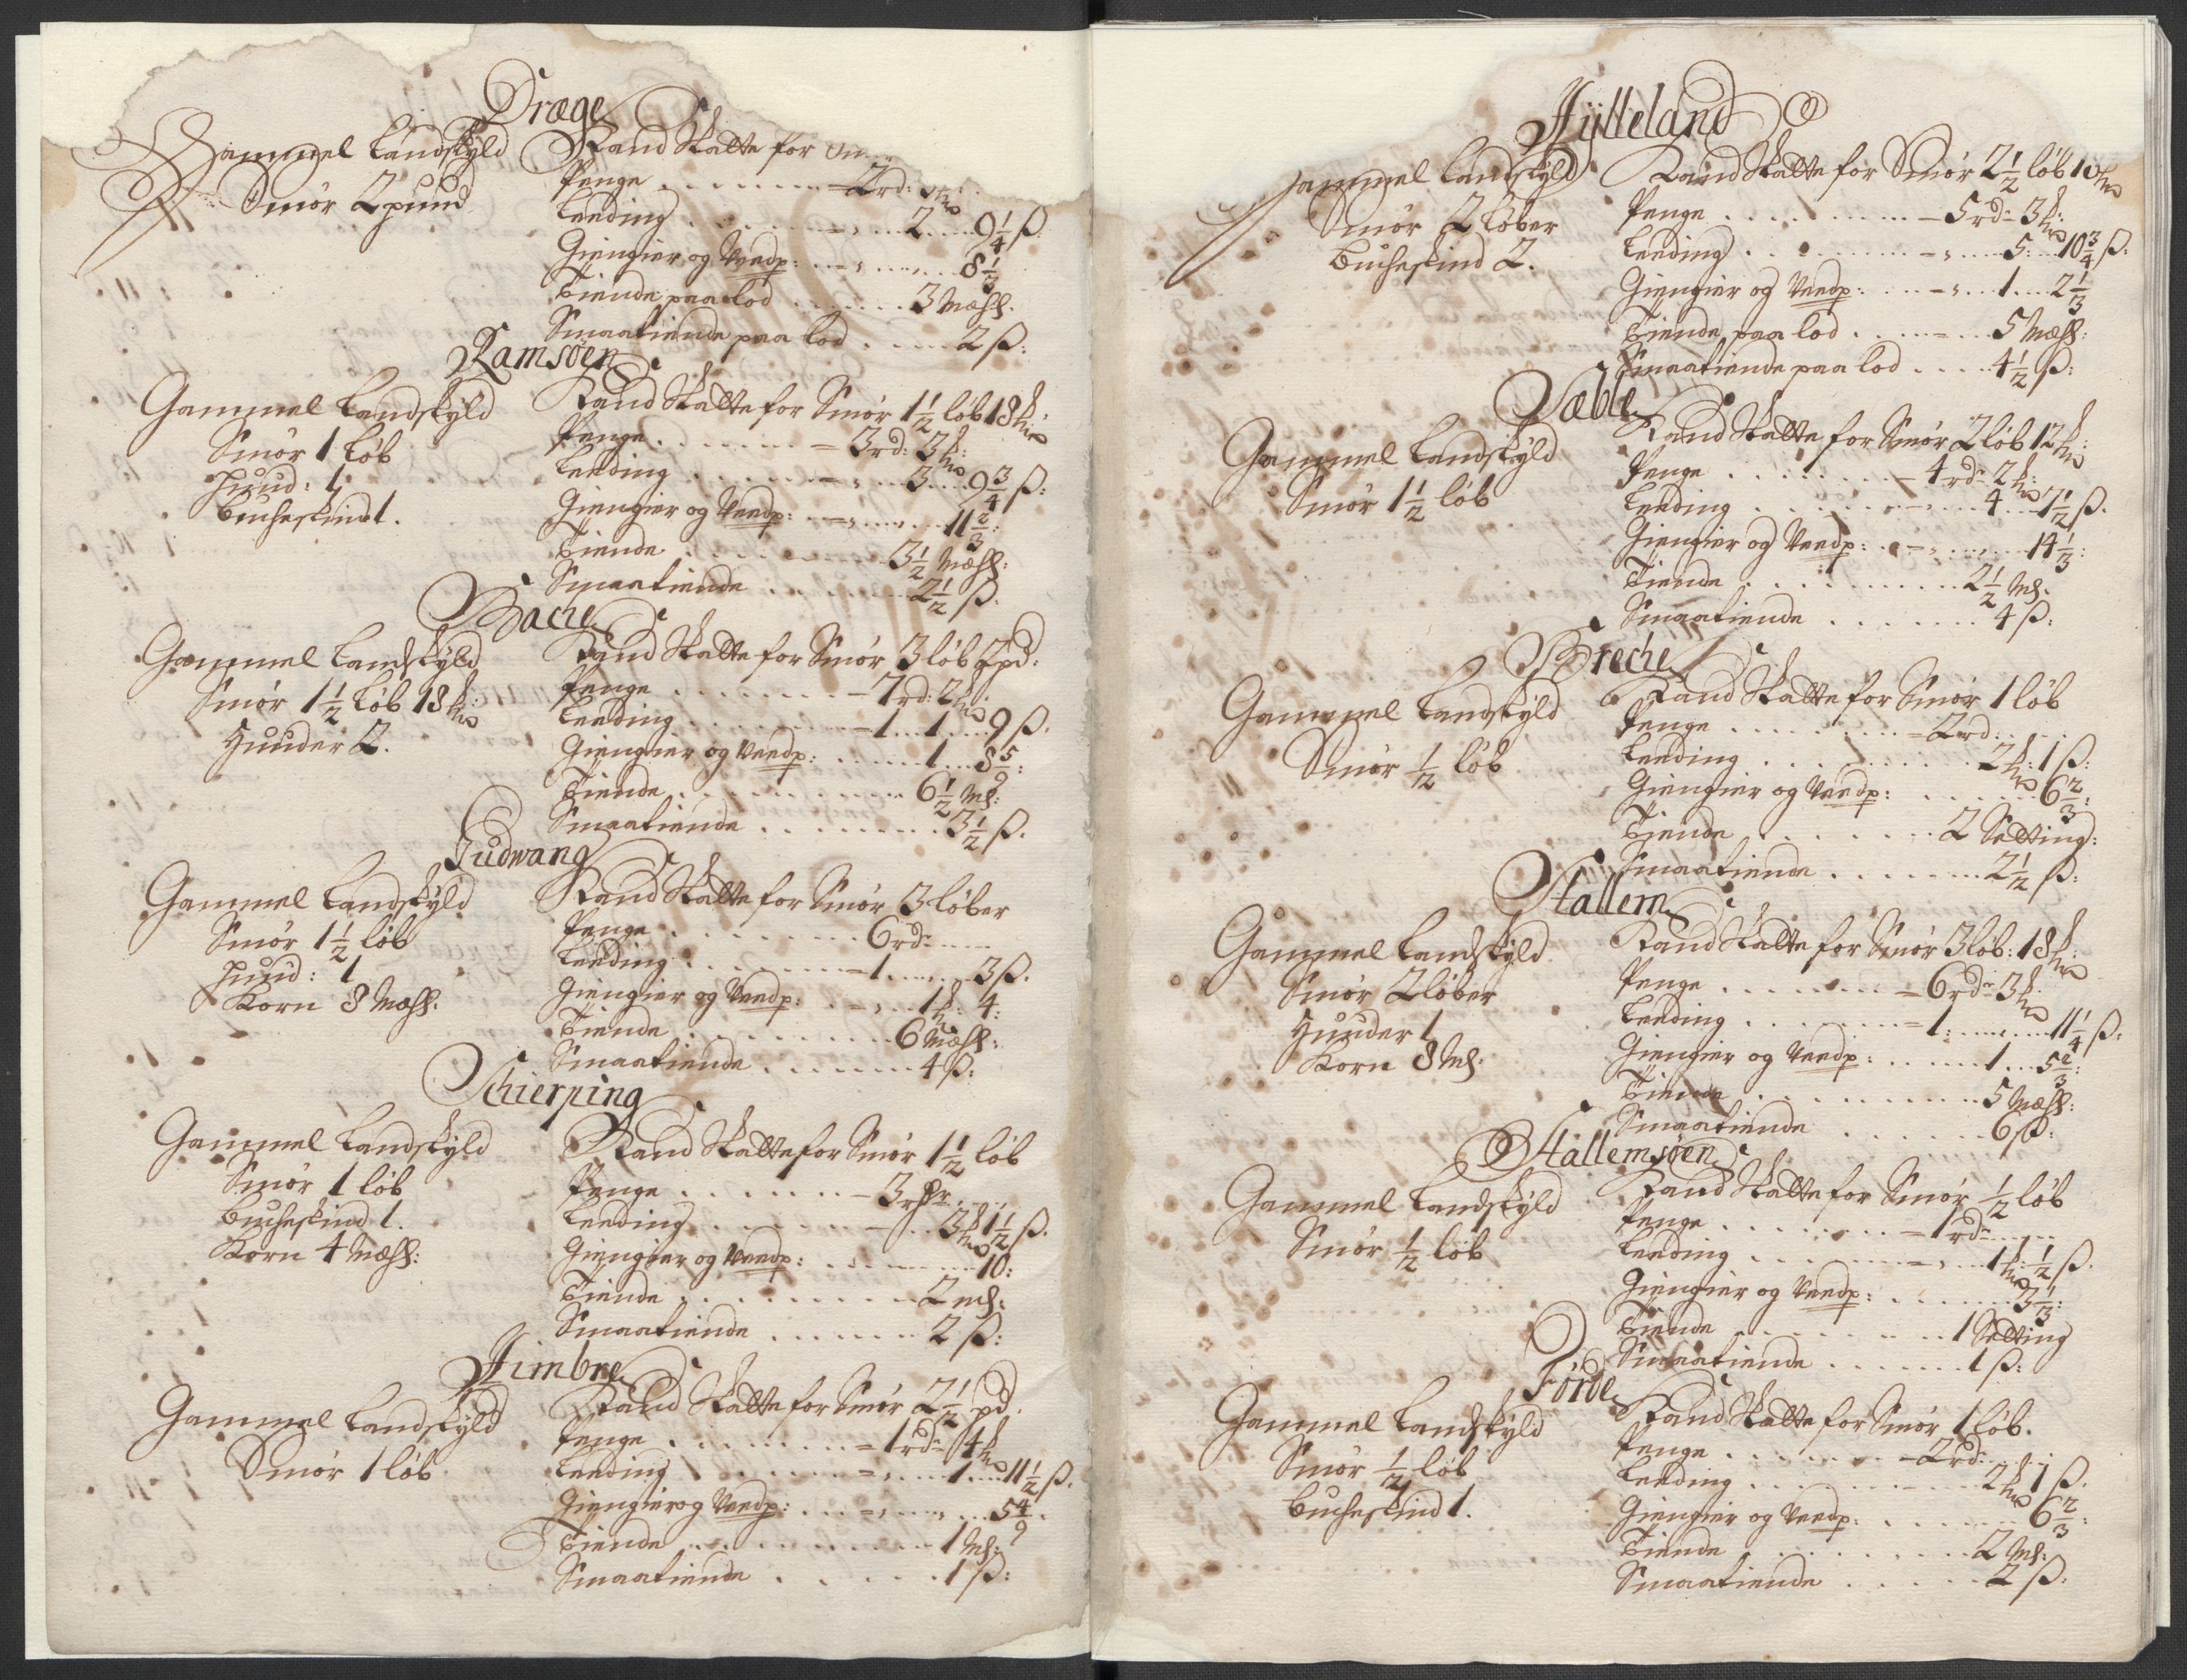 Dræge
Gammel Landskyld
Smør 2 pund
Rand Skatte for
Penge 2 rd:
Leeding 2 9 1/4 ß:
Giengier og Veedp: 8 1/3
Tiende paa lod 3 Mæhl:
Smaatiende paa lod 2 ß:
Ramsøen
Gammel Landskyld
Smør 1 Løb
Huud: 1
Bucheskind 1.
Rand Skatte for Smør 1 1/2 løb 18 mrk:
Penge 3 rd: 3 mrk:
Leeding 3 9 3/4 ß:
Giengier og Veedp: 11 2/3:
Tiende 3 1/2 Mæhl:
Smaatiende 2 1/2 ß:
Bache
Gammel Landskyld
Smør 1 1/2 Løb 18 mrk:
Huuder 2.
Rand Skatte for Smør 3 løb 2 pd:
Penge 7 rd: 2 mrk:
Leeding 1 1 9 ß.
Giengier og Veedp: 1 8 5/9:
Tiende 6 1/2 Mh:
Smaatiende 3 1/2 ß.
Gudwang
Gammel Landskyld
Smør 1 1/2 løb
Huud: 1
Korn 8 Mæhl:
Rand Skatte for Smør 3 løber
Penge 6 rdr
Leeding 1 3 ß.
Giengier og Veedp: 1 mrk: 4:
Tiende 6 Mæhl:
Smaatiende 4 ß:
Schierping
Gammel Landskyld
Smør 1 løb
Bucheskind 1.
Korn 4 Mæhl:
Rand Skatte for Smør 1 1/2 løb
Penge 3 rdr
Leeding 3 mrk 1 1/2 ß.
Giengier og Veedp: 10:
Tiende 2 Mh:
Smaatiende 2 ß:
Fimbre
Gammel Landskyld
Smør 1 løb
Rand Skatte for Smør 2 1/2 pd.
Penge 1 rdr 4 mrk
Leeding 1 11 1/2 ß.
Giengier og Veedp: 5 4/9.
Tiende 1 Mh:
Smaatiende 1 ß:
Hylleland
Gammel Landskyld
Smør 2 Løber
Bucheskind 2.
Rand Skatte for Smør 2 1/2 løb 10 mrk
Penge 5 rdr 3 mrk:
Leeding 5: 10 3/4 ß.
Giengier og Veedp: 1 2 1/3
Tiende paa lod 5 Mæhl:
Smaatiende paa lod 4 1/2 ß:
Sæble
Gammel Landskyld
Smør 1 1/2 løb
Rand Skatte for Smør 2 løb 12 mrk:
Penge 4 rdr 2 mrk:
Leeding 4 7 1/2 ß.
Giengier og Veedp: 14 1/3:
Tiende 2 1/2 Mh.
Smaatiende 4 ß:
Breche
Gammel Landskyld
Smør 1/2 løb
Rand Skatte for Smør 1 løb
Penge 2 rd:
Leeding 2 mrk: 1 ß:
Giengier og Veedp: 6 2/3:
Tiende 2 Setting:
Smaatiende 2 1/2 ß:
Stallem
Gammel Landskyld
Smør 2 løber
Huuder 1
Korn 8 Mh:
Rand Skatte for Smør 3 løb: 18 mrk:
Penge 6 rdr 3 mrk
Leeding 1: 11 1/4 ß:
Giengier og Veedp: 1 5 2/3:
Tiende 5 Mæhl:
Smaatiende 6 ß:
Stallemsøen
Gammel Landskyld
Smør 1/2 løb
Rand Skatte for Smør 1/2 løb
Penge 1 rdr
Leeding 1 mrk: 1/2 ß.
Giengier og Veedp: 3 1/3:
Tiende 1 Setting
Smaatiende 1 ß:
Førde
Gammel Landskyld
Smør 1/2 løb
Bucheskind 1.
Rand Skatte for Smør 1 løb.
Penge 2 rd:
Leeding 2 mrk 1 ß.
Giengier og Veedp: 6 2/3:
Tiende 2 Mh:
Smaatiende 2 ß: